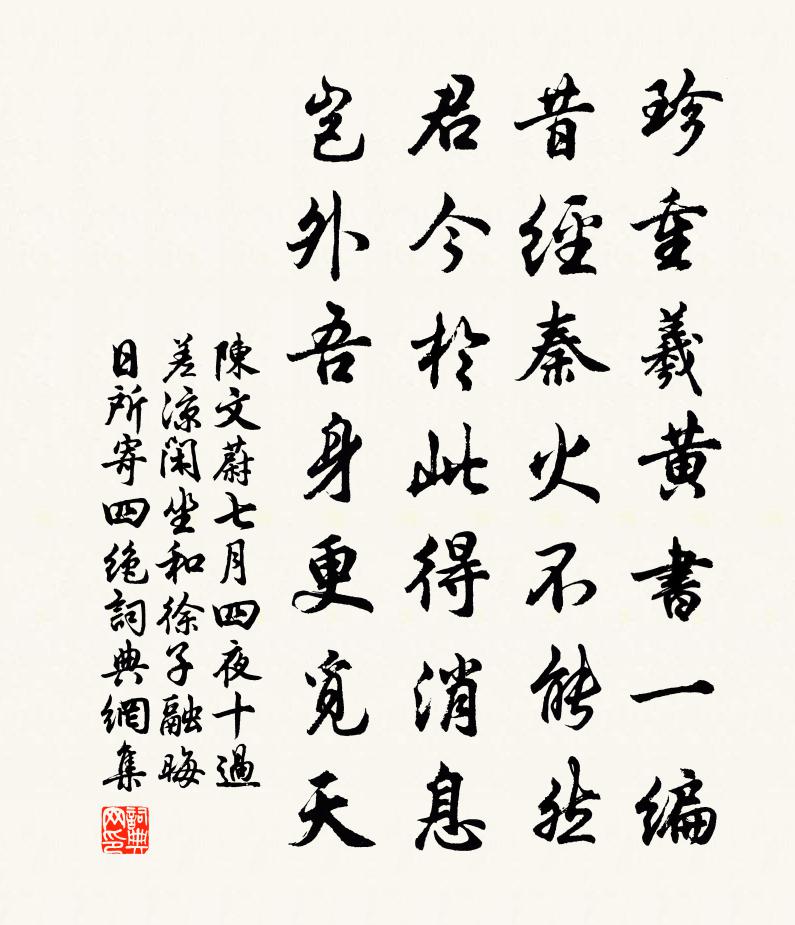 珍重羲黄書一編
昔經秦火不能然
君今於此得消息
豈外吾身更覓天
陳文蔚七月四夜十過
差涼閑坐和徐子融晦
日所寄四絶詞典網集
詞典网印